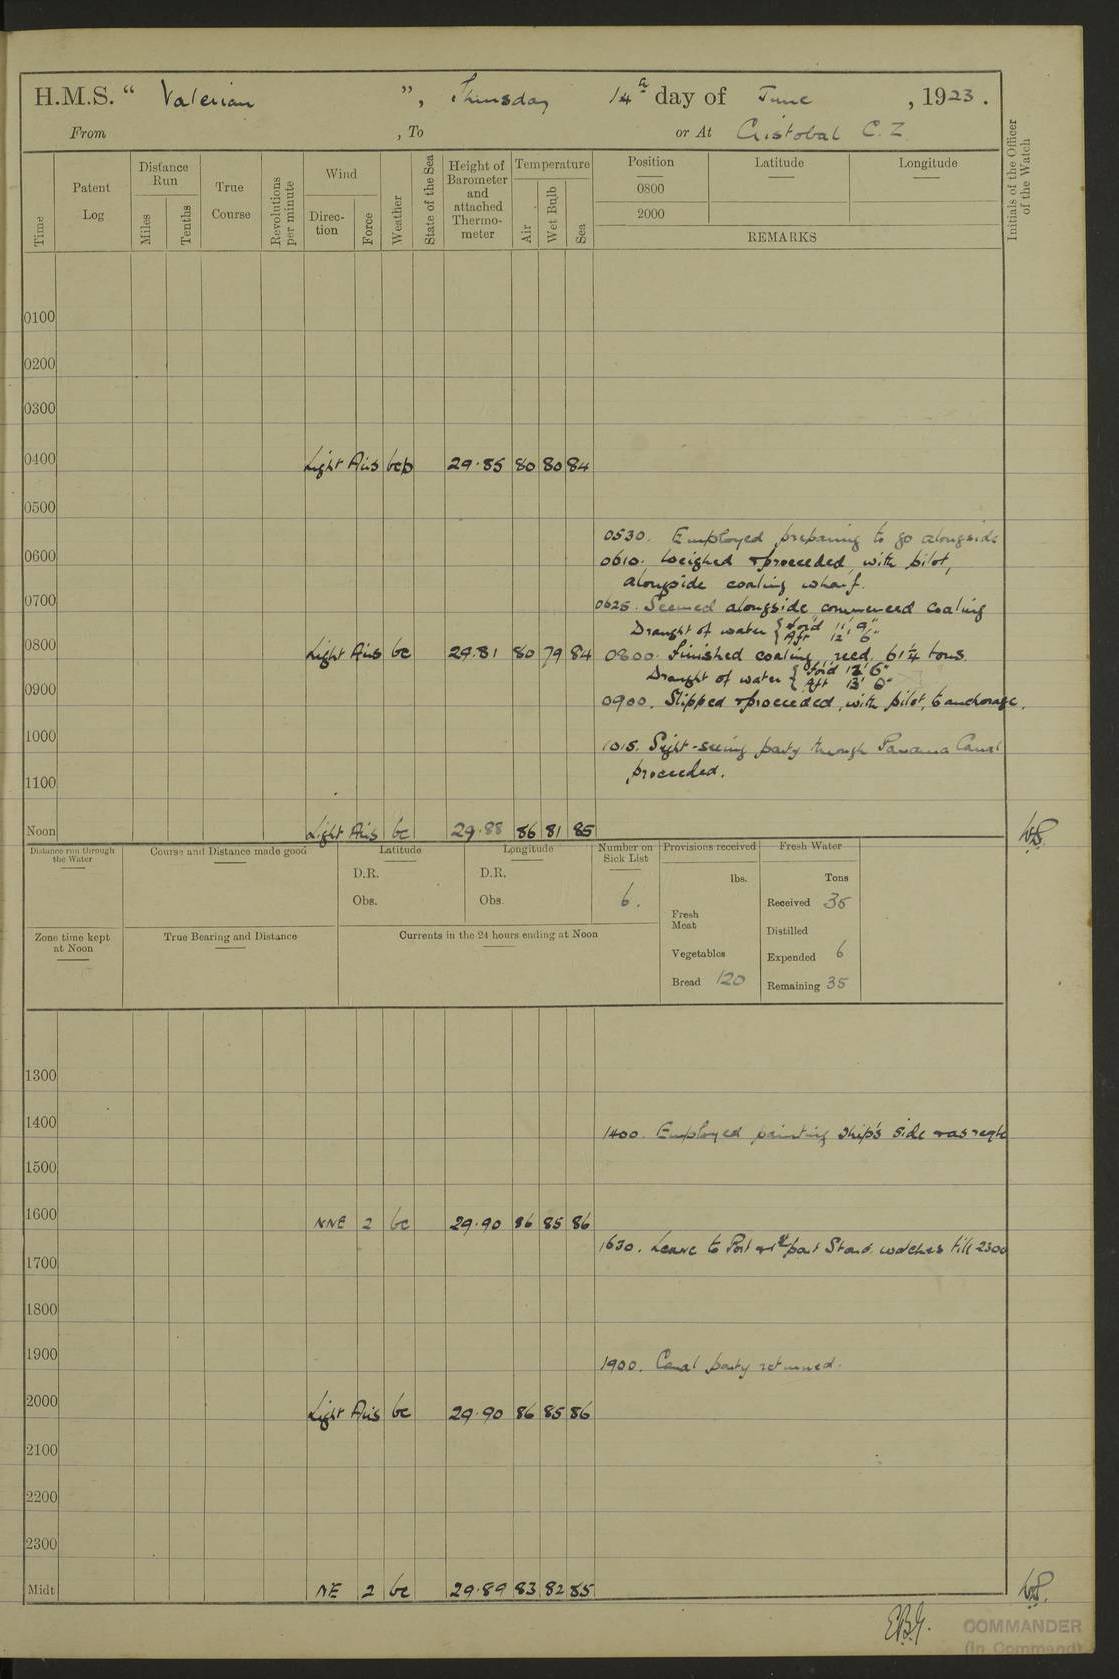 H.M.S. “ Valerian ”, Thursday 14th day of June , 1923 .
From , To or At Cristobal C.Z.
Initials of the Officer of the Watch
Time
Patent Log
Distance Run
Miles
Tenths
True Course
Revolutions per minute
Wind
Direction
Force
Weather
State of the Sea
Height of Barometer and attached Thermometer
Temperature
Air
Wet Bulb
Sea
Position Latitude Longitude
0800
2000
REMARKS
0100
0200
0300
0400 Light Airs bcp 29.85 80 80 84
0500
0530. Employed preparing to go alongside
0600 0610. Weighed & proceeded, with pilot,
alongside coaling wharf.
0700 0625. Secured alongside, commenced coaling
Draught of water { For'd 11' 9"
Aft 12' 6"
0800 Light Airs bc 29.81 80 79 84 0800. Finished coaling, recd. 61¼ tons.
Draught of water { For'd 12' 6"
Aft 13' 0"
0900 0900. Slipped & proceeded, with pilot, to anchorage.
1000 1015. Sight-seeing party through Panama Canal
proceeded.
1100
Noon Light Airs bc 29.88 86 81 85 W.P.
Distance run through the Water
Course and Distance made good
Latitude
D.R.
Obs.
Longitude
D.R.
Obs.
Number on Sick List
6.
Provisions received
lbs.
Fresh Meat
Vegetables
Bread 120
Fresh Water
Tons
Received 35
Distilled
Expended 6
Remaining 35
Zone time kept at Noon
True Bearing and Distance
Currents in the 24 hours ending at Noon
1300
1400 1400. Employed painting Ship's side & as reqte
1500
1600 NNE 2 bc 29.90 86 85 86
1630. Leave to Port & 1st part Starbd. watches till 2300
1700
1800
1900 1900. Canal party returned.
2000 Light Airs bc 29.90 86 85 86
2100
2200
2300
Midt NE 2 bc 29.89 83 82 85 W.P.
COMMANDER
(In Command)